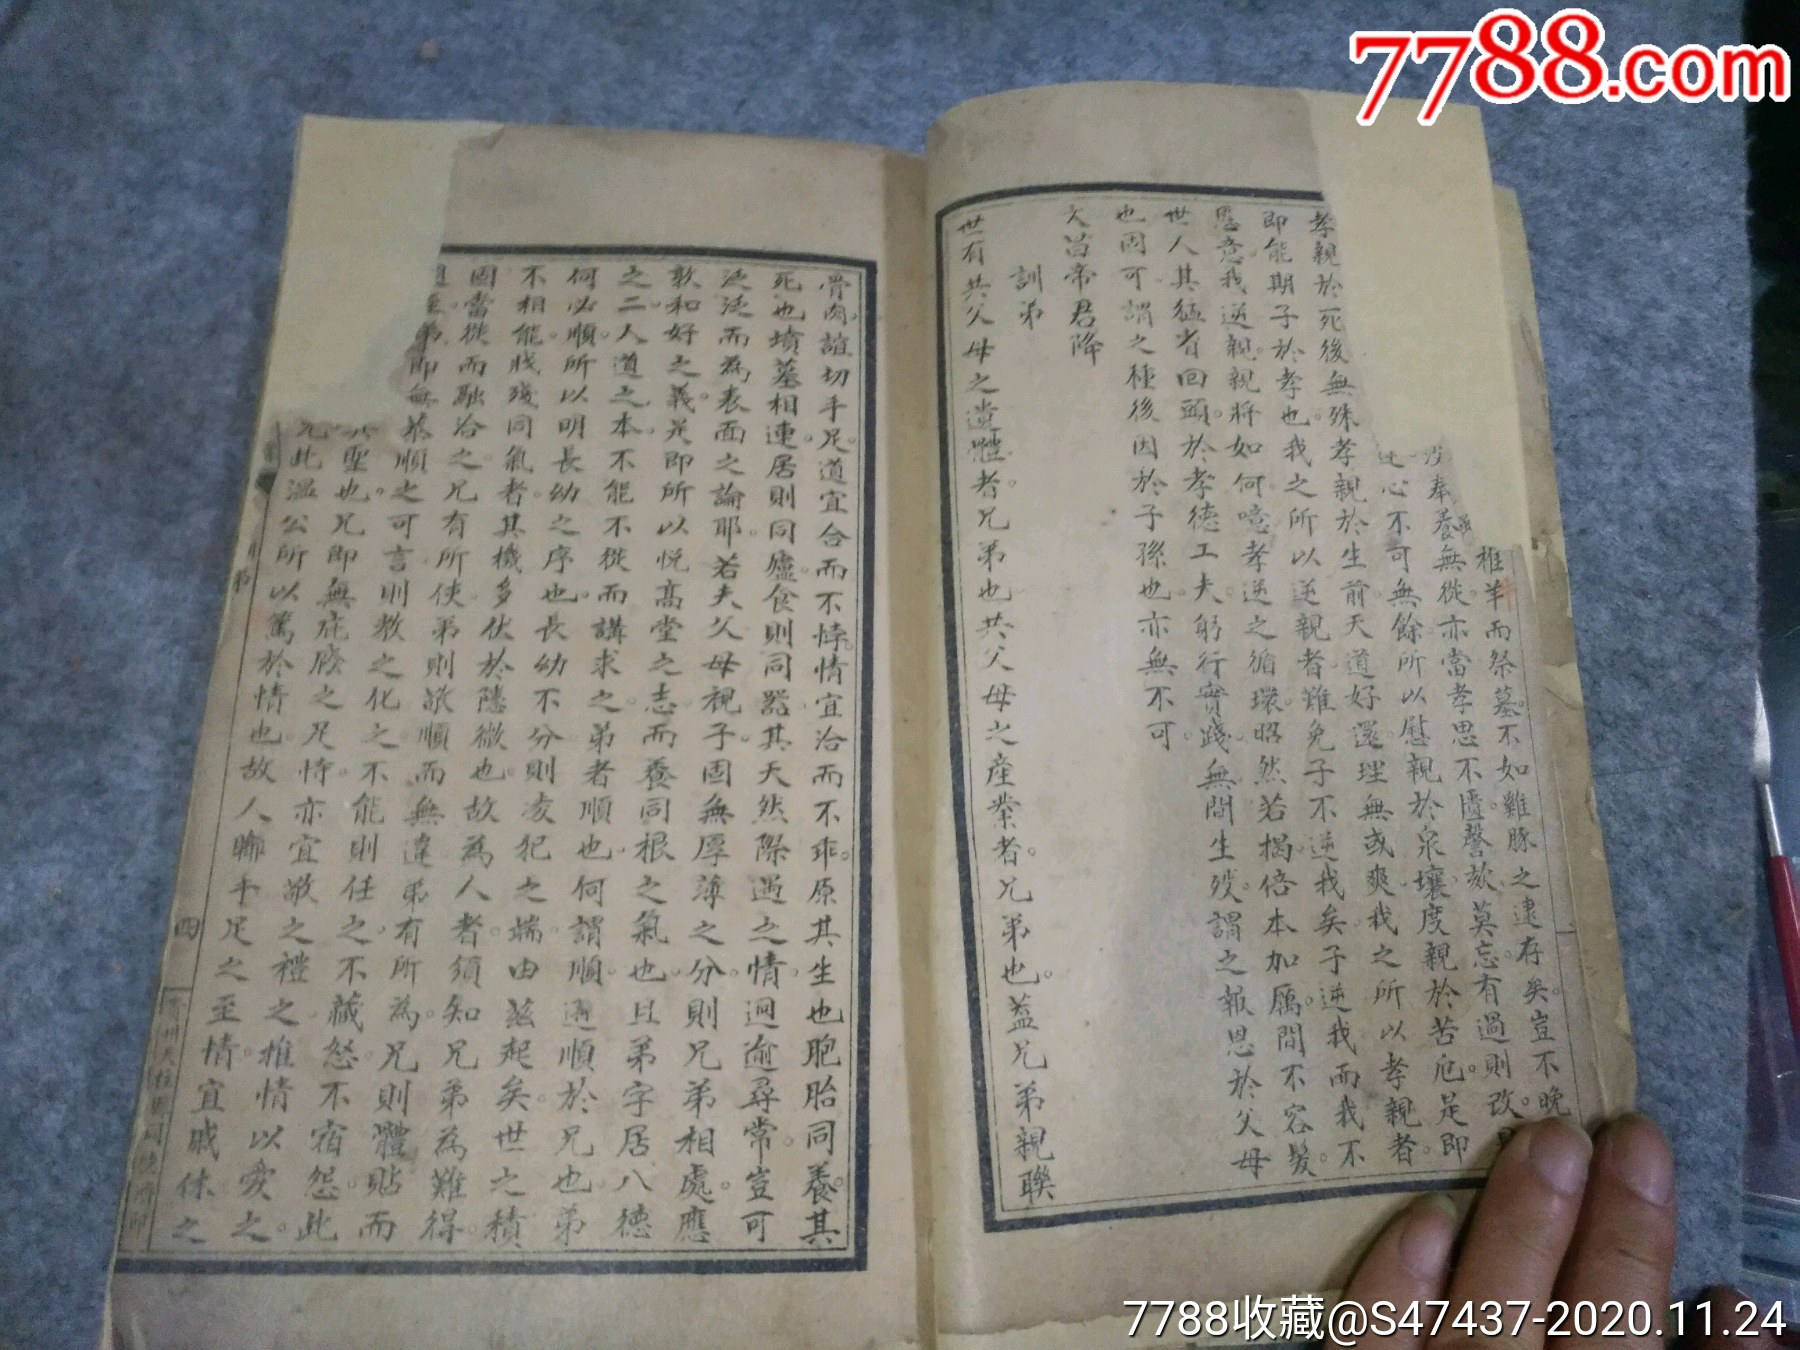 7788.com
椎羊而祭墓。不如雞豚之逮存矣。豈不晚
奉養無從。亦當孝思不匱。謦欬莫忘。有過則改。
心不可無餘。所以慰親於泉壤。度親於苦厄。是即
孝親於死後無殊。孝親於生前。天道好還。理無或爽。我之所以孝親者。
即能期子於孝也。我之所以逆親者。難免子不逆我矣。子逆我而我不
愿意。我逆親。親將如何。噫。孝逆之循環。昭然若揭。倍本加厲。間不容髮。
世人其猛省回頭。於孝德工夫。躬行實踐。無間生歿。謂之報恩於父母
也固可。謂之種後因於子孫也。亦無不可。
文昌帝君降
訓弟
世有共父母之遺體者。兄弟也。共父母之產業者。兄弟也。蓋兄弟親聯
骨肉。誼切手足。道宜合而不悖。情宜洽而不乖。原其生也。胞胎同養。其
死也。墳墓相連。居則同廬。食則同器。其天然際遇之情。迥逾尋常。豈可
泛泛而為表面之論耶。若夫父母視子。固無厚薄之分。則兄弟相處。應
敦和好之義。是即所以悅高堂之志。而養同根之氣也。且弟字居八德
之二。人道之本。不能不從而講求之。弟者順也。何謂順。遜順於兄也。弟
何必順。所以明長幼之序也。長幼不分。則凌犯之端。由茲起矣。世之積
不相能。戕殘同氣者。其機多伏於隱微也。故為人者。須知兄弟為難得。
固當從而融洽之。兄有所使。弟則敬順而無違。弟有所為。兄則體貼而
弟即無恭順之可言。則教之化之。不能則任之。不藏怒。不宿怨。此
聖也。兄即無庇廕之足恃。亦宜敬之禮之。推情以愛之。
此溫公所以篤於情也。故人聯手足之至情。宜戚休之
四
7788收藏@S47437-2020.11.24